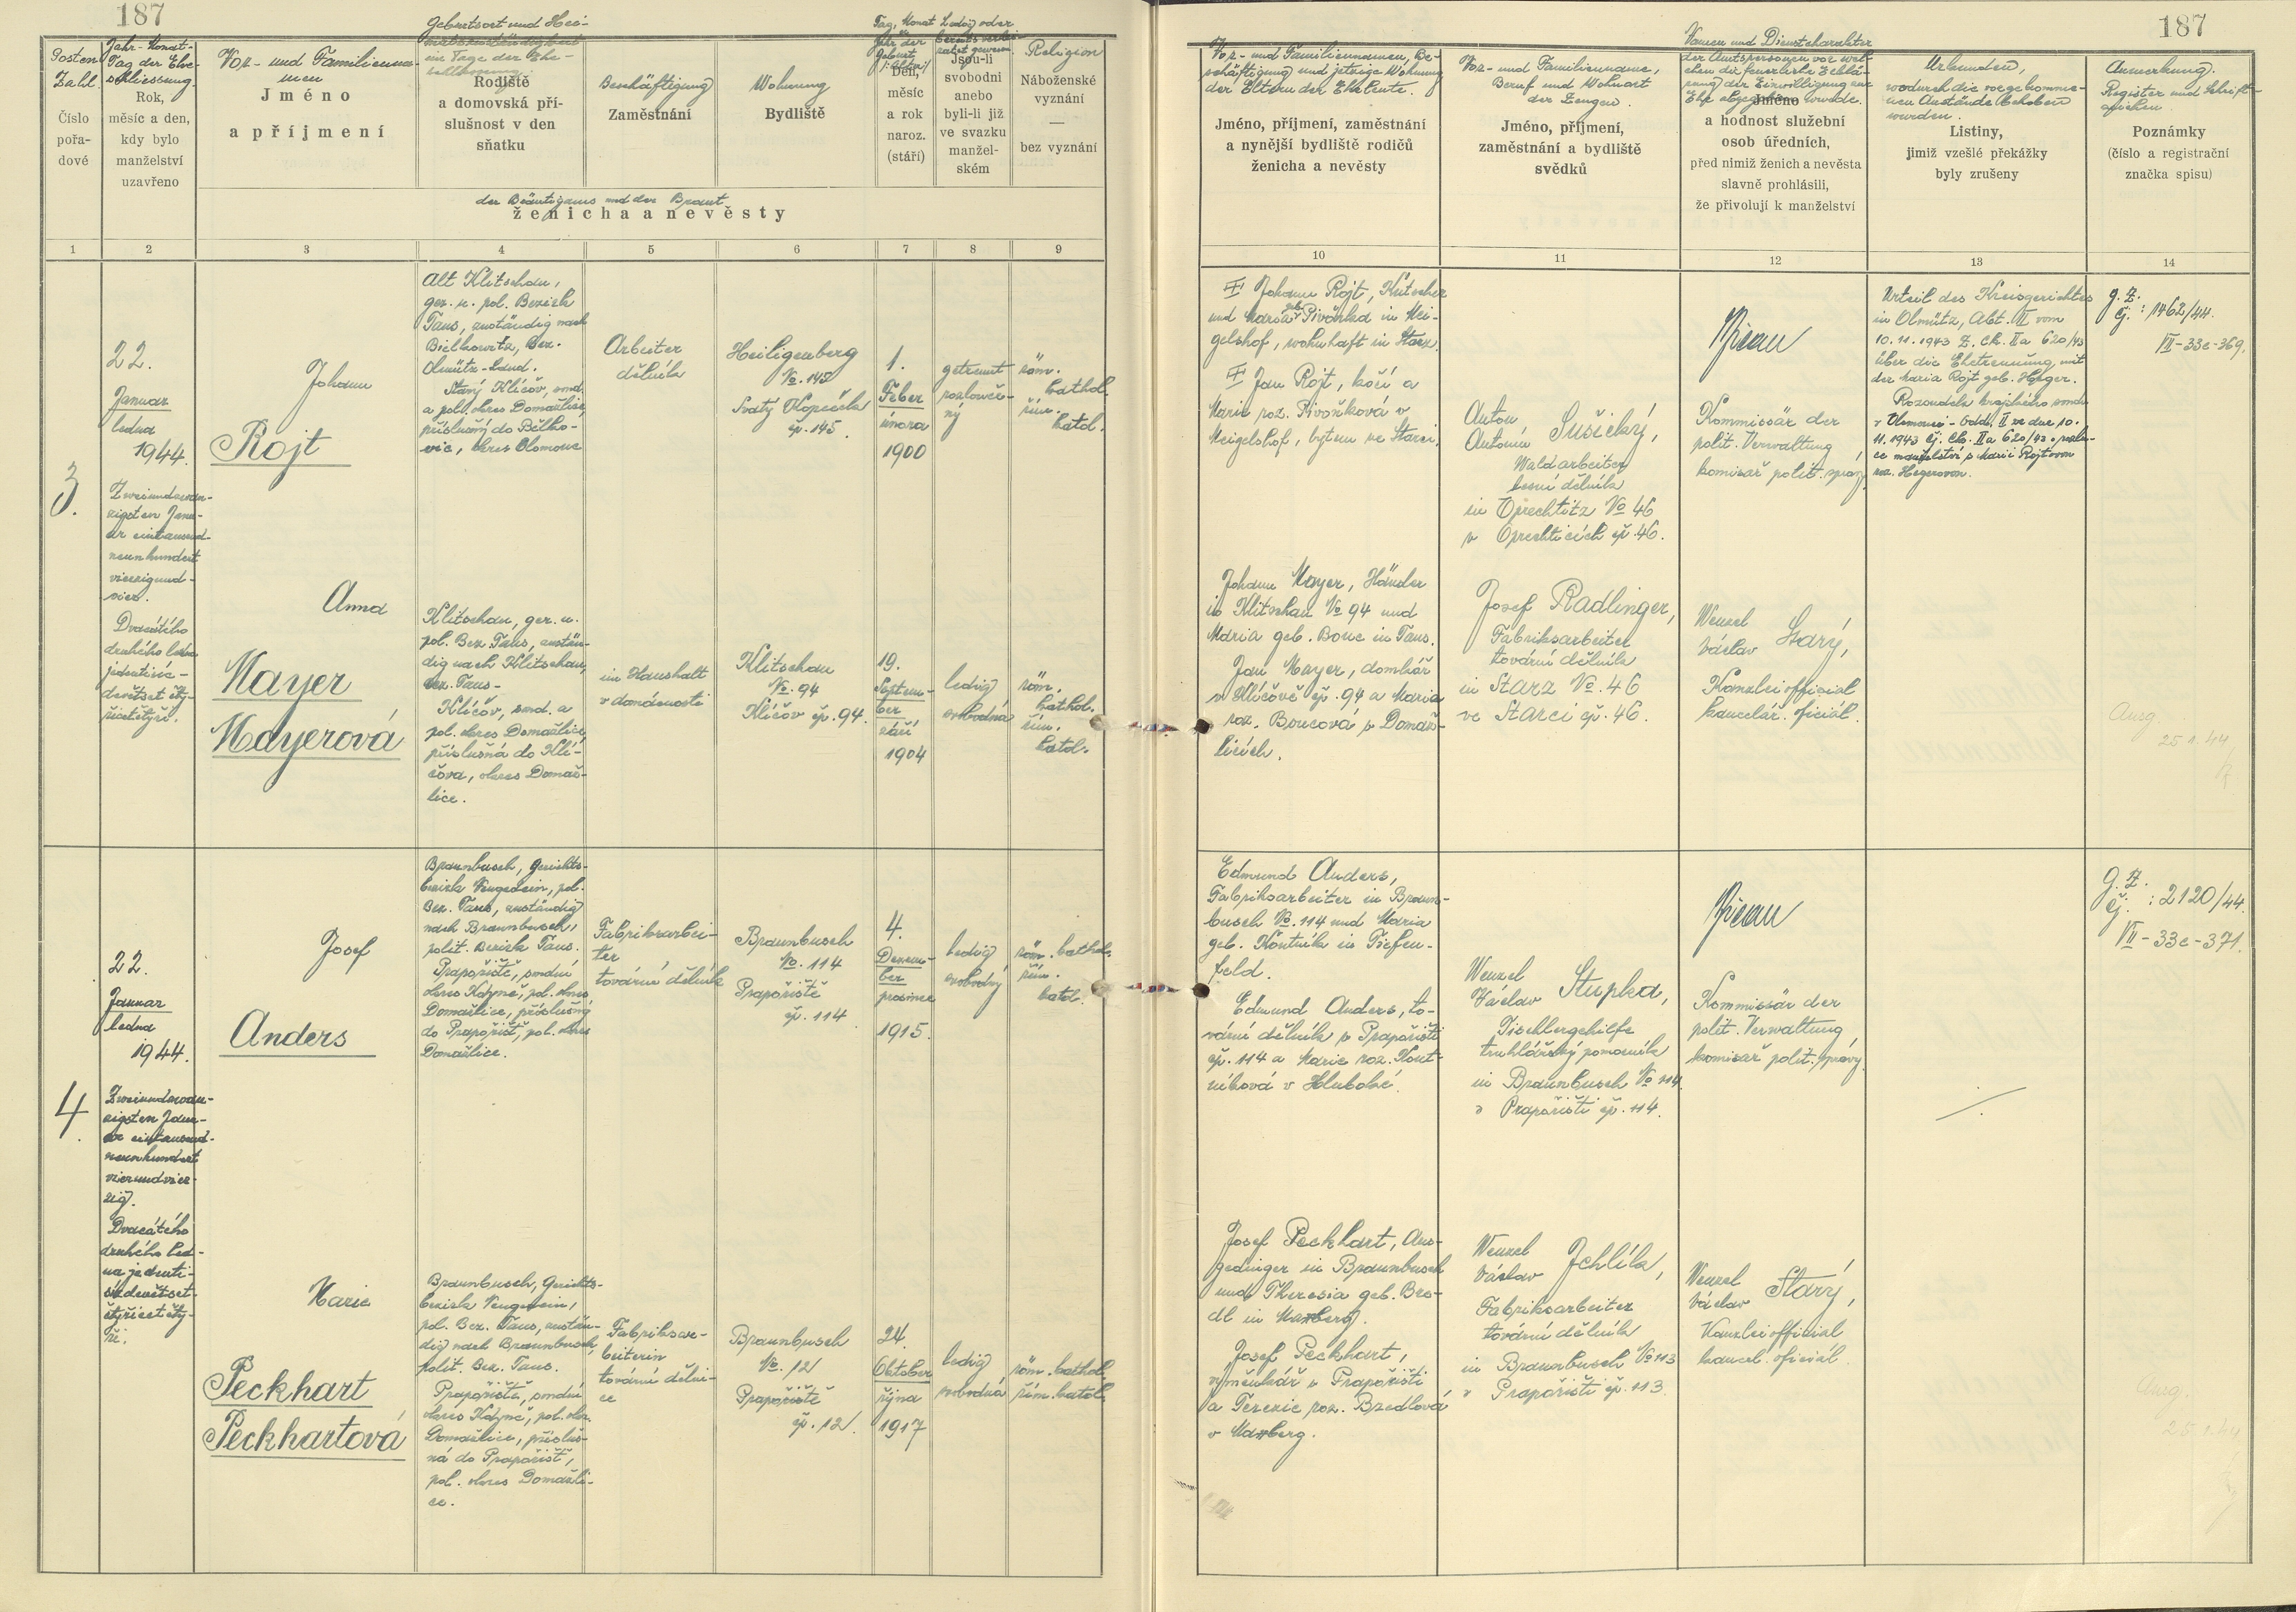 187
Posten
Zahl
Číslo
pořa-
dové
Jahr-Monat-
Tag der Ehe-
schliessung
Rok,
měsíc a den,
kdy bylo
manželství
uzavřeno
Vor- und Familienna-
men
Jméno
a příjmení
Geburtsort und Hei-
Rodiště
a domovská pří-
slušnost v den
sňatku
Beschäftigung
Zaměstnání
Wohnung
Bydliště
Tag, Monat
Jahr der
Geburt
Den,
měsíc
a rok
naroz.
(stáří)
Ledig oder
bereits verhei-
ratet gewesen
Jsou-li
svobodni
anebo
byli-li již
ve svazku
manžel-
ském
Religion
Náboženské
vyznání
—
bez vyznání
der Bräutigams und der Braut
ženicha a nevěsty
1 2 3 4 5 6 7 8 9
3.
22.
Januar
ledna
1944.
Zweiundzwan-
zigsten Janu-
ar eintausend-
neunhundert
vierzigund-
vier.
Dvacátého
druhého ledna
jedentisíc-
devětset čty-
řicetčtyři.
Johann
Rojt
Alt Klitschau,
ger. u. pol. Bezirk
Taus, zuständig nach
Bielkowitz, Bez.
Olmütz-Land.
Starý Klíčov, soud.
a polit. okres Domažlice,
příslušný do Bělko-
vic, okres Olomouc
Arbeiter
dělník
Heiligenberg
No. 145
Svatý Kopeček
čp. 145.
1.
Feber
února
1900
getrennt
rozlouče-
ný
röm.
kathol.
řím.
katol.
Anna
Mayer
Mayerová
Klitschau, ger. u.
pol. Bez. Taus, zustän-
dig nach Klitschau,
Bez. Taus-
Klíčov, soud. a
pol. okres Domažlice,
příslušná do Klí-
čova, okres Domaž-
lice.
im Haushalt
v domácnosti
Klitschau
No. 94
Klíčov čp. 94.
19.
Septem-
ber
září
1904
ledig
svobodná
röm.
kathol.
řím.
katol.
4.
22.
Januar
ledna
1944.
Zweiundzwan-
zigsten Janu-
ar eintausend-
neunhundert
vierundvier-
zig.
Dvacátého
druhého led-
na jedenti-
síc devětset-
čtyřicetčty-
ři.
Josef
Anders
Braunbusch, Gerichts-
bezirk Neugedein, pol.
Bez. Taus, zuständig
nach Braunbusch,
polit. Bezirk Taus.
Prapořiště, soudní
okres Kdyně, pol. okres
Domažlice, příslušný
do Prapořišť, pol. okres
Domažlice.
Fabriksarbei-
ter
tovární dělník
Braunbusch
No. 114
Prapořiště
čp. 114
4.
Dezem-
ber
prosince
1915.
ledig
svobodný
röm. kathol.
řím.
katol.
Marie
Peckhart
Peckhartová
Braunbusch, Gerichts-
bezirk Neugedein,
pol. Bez. Taus, zustän-
dig nach Braunbusch,
polit. Bez. Taus.
Prapořiště, soudní
okres Kdyně, pol. okr.
Domažlice, přísluš-
ná do Prapořišť,
pol. okres Domažli-
ce.
Fabriksar-
beiterin
tovární dělni-
ce
Braunbusch
No. 12
Prapořiště
čp. 12.
24.
Oktober
října
1917
ledig
svobodná
röm. kathol.
řím. katol.
187
Vor- und Familiennamen, Be-
schäftigung und jetzige Wohnung
der Eltern der Eheleute.
Jméno, příjmení, zaměstnání
a nynější bydliště rodičů
ženicha a nevěsty
Vor- und Familienname,
Beruf und Wohnort
der Zeugen.
Jméno, příjmení,
zaměstnání a bydliště
svědků
Namen und Dienstcharakter
der Amtspersonen vor wel-
chen die feierliche Erklä-
rung der Einwilligung zur
Ehe abgegeben wurde.
Jméno
a hodnost služební
osob úředních,
před nimiž ženich a nevěsta
slavně prohlásili,
že přivolují k manželství
Urkunden,
wodurch die vorgekomme-
nen Anstände behoben
wurden.
Listiny,
jimiž vzešlé překážky
byly zrušeny
Anmerkung.
Register und Schrift-
zeichen
Poznámky
(číslo a registrační
značka spisu)
10 11 12 13 14
Johann Rojt, Kutscher
und Maria geb. Pivoňka in Mei-
gelshof, wohnhaft in Starz.
Jan Rojt, kočí a
Marie roz. Pivoňková v
Meigelshof, bytem ve Starci.
Anton
Antonín Sušický,
Waldarbeiter
lesní dělník
in Oprechtitz No 46
v Oprechticích čp. 46.
Kommissär der
polit. Verwaltung
komisař polit. správy
Urteil des Kreisgerichtes
in Olmütz, Abt. II vom
10.11.1943 Z. Ck. IIa 620/43
über die Ehetrennung mit
der Maria Rojt geb. Heger.
Rozsudek krajského soudu
v Olomouci - odd. II ze dne 10.
11.1943 čj. Ck. IIa 620/43 o rozlu-
ce manželství s Marií Rojtovou
roz. Hegerovou.
G.Z.
čj. : 1462/44.
VII-33c-369.
Johann Mayer, Häusler
in Klitschau No 94 und
Maria geb. Bouc in Taus.
Jan Mayer, domkář
v Klíčově čp. 94 a Maria
roz. Boucová v Domaž-
licích.
Josef Radlinger,
Fabriksarbeiter
tovární dělník
in Starz No. 46
ve Starci čp. 46.
Wenzel
Václav Starý,
Kanzleiofficial
kancelář. oficiál.
Ausg.
25.1.44
Edmund Anders,
Fabriksarbeiter in Braun-
busch No. 114 und Maria
geb. Koutník in Tiefen-
feld.
Edmund Anders, to-
vární dělník v Prapořišti
čp. 114 a Marie roz. Kout-
níková v Hluboké.
Wenzel
Václav Stupka,
Tischlergehilfe
truhlářský pomocník
in Braunbusch No 114
v Prapořišti čp. 114.
Kommissär der
polit. Verwaltung
komisař polit. správy.
G.Z.
čj. : 2120/44.
VII-33c-371.
Josef Peckhart, Aus-
gedinger in Braunbusch
und Theresia geb. Bre-
dl in Maxberg.
Josef Peckhart,
výměnkář v Prapořišti
a Terezie roz. Bredlová
v Maxberg.
Wenzel
Václav Jchlík,
Fabriksarbeiter
tovární dělník
in Braunbusch No 113
v Prapořišti čp. 113.
Wenzel
Václav Starý,
Kanzleiofficial
kancel. oficiál.
Ausg.
25.1.44